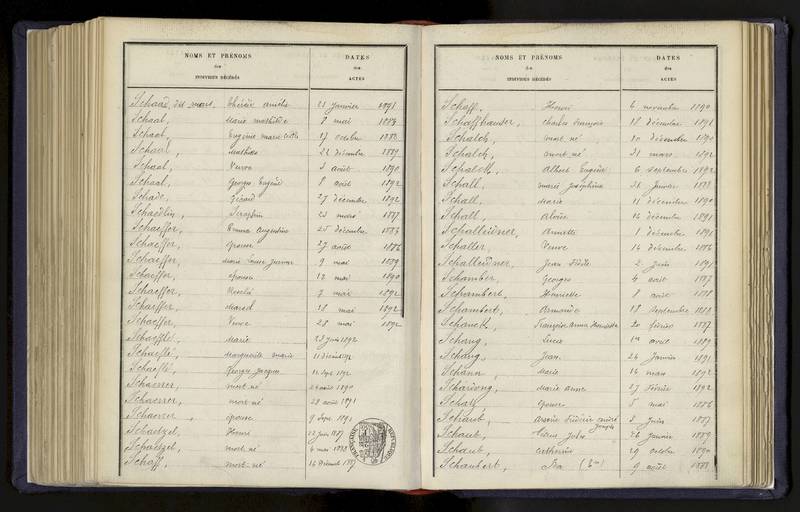 NOMS ET PRÉNOMS
des
INDIVIDUS DÉCÉDÉS
DATES
des
ACTES
Schaad, dit mars. Thérèse Amélie 21 janvier 1891
Schaal, Marie Mathilde 8 mai 1883
Schaal, Eugénie Marie 17 octobre 1888
Schaal, Mathias 22 décembre 1889
Schaal, Veuve 3 août 1890
Schaal, Georges Eugène 8 août 1892
Schade, Gérard 27 décembre 1892
Schaedlin, Séraphin 23 mars 1887
Schaeffer, Emma Augustine 25 décembre 1883
Schaeffer, épouse 27 août 1886
Schaeffer, Marie Louise 9 mai 1889
Schaeffer, épouse 12 mai 1890
Schaeffer, Rosalie 7 mai 1892
Schaeffer, Marcel 18 mai 1892
Schaeffer, Veuve 28 mai 1892
Schaefflé, Marie 23 juin 1892
Schaeflé, Marguerite Marie 11 décembre 1892
Schaeflé, Georges Jacques 12 Sept. 1892
Schaerer, mort-né 24 août 1890
Schaerrer, mort-né 28 août 1891
Schaerrer, épouse 9 Sept. 1892
Schaetzel, Henri 22 juin 1887
Schaetzel, mort-né 4 mars 1888
Schaff, mort-né 1887
NOMS ET PRÉNOMS
des
INDIVIDUS DÉCÉDÉS
DATES
des
ACTES
Schaff, Henri 4 novembre 1890
Schaffhauser, Charles François 18 décembre 1891
Schalch, mort-né 10 décembre 1890
Schalch, mort-né 31 mars 1892
Schalck, Albert Eugène 6 septembre 1892
Schall, Marie Joséphine 31 janvier 1888
Schall, Marie 11 décembre 1890
Schall, Aloïse 16 décembre 1891
Schalleidner, Annette 1 décembre 1891
Schaller, Veuve 14 décembre 1886
Schalleidner, Jean 2 juin 1891
Schamber, Georges 4 août 1887
Schambert, Henriette 8 août 1888
Schambert, Armande 18 septembre 1888
Schanck, Françoise Anna Henriette 20 février 1887
Schang, Lucie 1er avril 1889
Schang, Jean 24 janvier 1891
Schann, Marie 16 mars 1892
Schariong, Marie Anne 27 février 1892
Schatz, épouse 5 mai 1886
Schaub, Frédéric André Joseph 3 juin 1887
Schaub, Jules 26 janvier 1889
Schaub, Catherine 29 octobre 1890
Schaubert, 9 août 1888